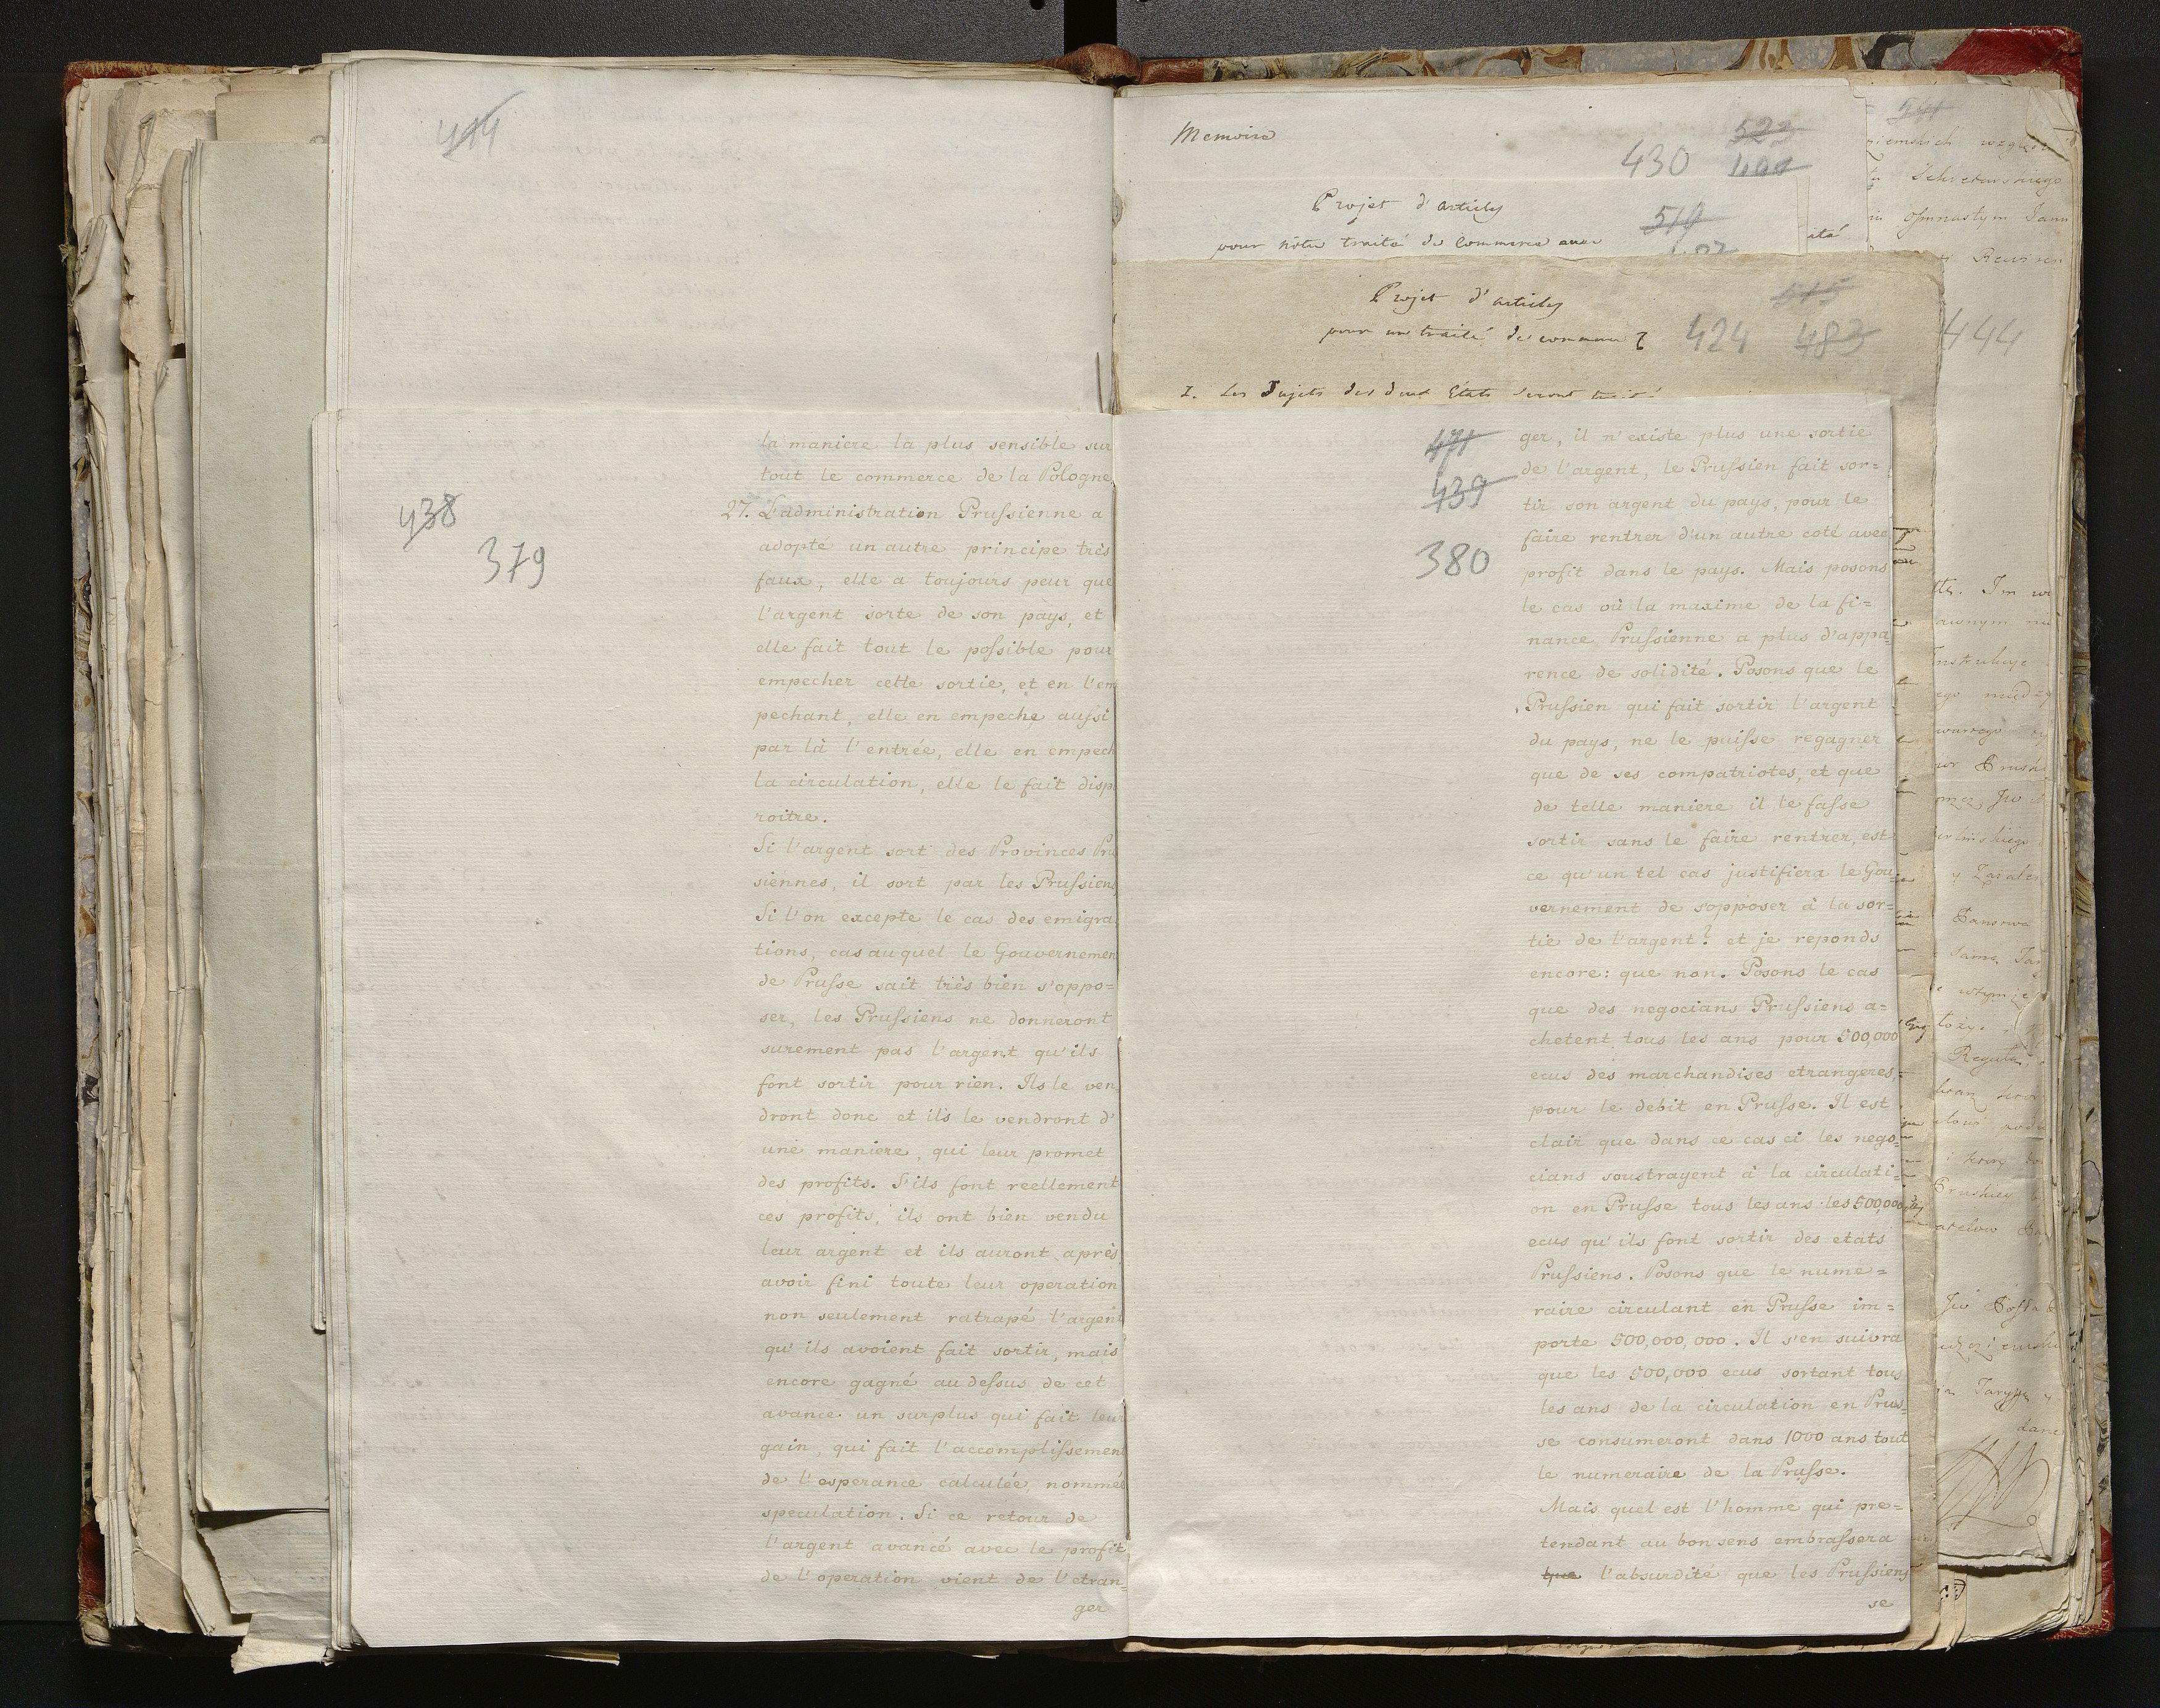 444
la maniere la plus sensible sur
tout le commerce de la Pologne
438
379
27. L'administration Prussienne a
adopté un autre principe très
faux, elle a toujours peur que
l'argent sorte de son pays, et
elle fait tout le possible pour
empecher cette sortie, et en l'em
pechant, elle en empeche aussi
par là l'entrée, elle en empech
la circulation, elle le fait disp
roitre.
Si l'argent sort des Provinces Pru
siennes, il sort par les Prussiens
Si l'on excepte le cas des emigra
tions, cas auquel le Gouvernemen
de Prusse sait très bien s'oppo=
ser, les Prussiens ne donneront
surement pas l'argent qu'ils
font sortir pour rien. Ils le ven
dront donc et ils le vendront d'
une maniere, qui leur promet
des profits. S'ils font reellement
ces profits, ils ont bien vendu
leur argent et ils auront après
avoir fini toute leur operation
non seulement ratrapé l'argent
qu'ils avoient fait sortir, mais
encore gagné au dessus de cet
avance un surplus qui fait leur
gain, qui fait l'accomplissement
de l'esperance calculée, nommée
speculation. Si ce retour de
l'argent avancé avec le profit
de l'operation vient de l'etran=
ger
Memoire
523
430
Projet d'articles
519
pour notre traité de Commerce avec
Projet d'articles
515
pour un traité de commerce
424 483
1. Les Sujets des deux Etats seront
444
471
439
380
ger, il n'existe plus une sortie
de l'argent, le Prussien fait sor=
tir son argent du pays, pour le
faire rentrer d'un autre coté avec
profit dans le pays. Mais posons
le cas où la maxime de la fi=
nance Prussienne a plus d'appa=
rence de solidité. Posons que le
Prussien qui fait sortir l'argent
du pays, ne le puisse regagner
que de ses compatriotes, et que
de telle maniere il le fasse
sortir sans le faire rentrer, est
ce qu'un tel cas justifiera le Gou=
vernement de s'opposer à la sor=
tie de l'argent? et je reponds
encore: que non. Posons le cas
que des negocians Prussiens a=
chetent tous les ans pour 500,000
ecus des marchandises etrangeres,
pour le debit en Prusse. Il est
clair que dans ce cas ci les nego=
cians soustrayent à la circulati=
on en Prusse tous les ans les 500,000
ecus qu'ils font sortir des etats
Prussiens. Posons que le nume=
raire circulant en Prusse im=
porte 500,000,000. Il s'en suivra
que les 500,000 ecus sortant tous
les ans de la circulation en Prus=
se consumeront dans 1000 ans tout
le numeraire de la Prusse.
Mais quel est l'homme qui pre=
tendant au bon sens embrassera
que l'absurdité que les Prussiens
se